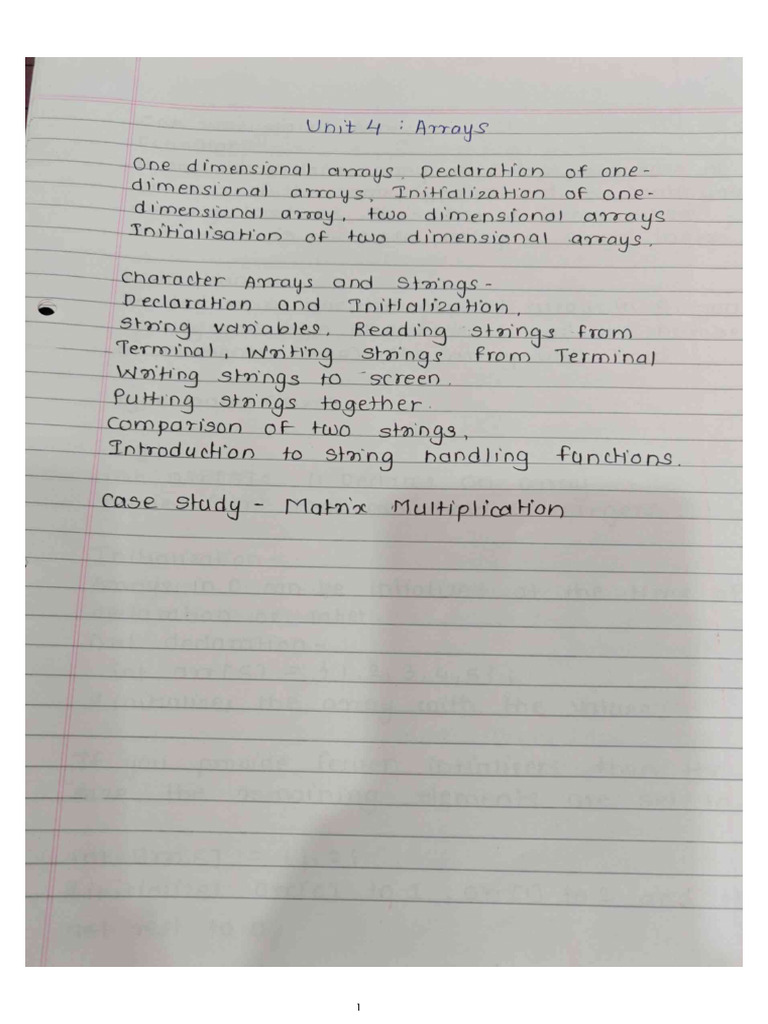 Unit 4 : Arrays
One dimensional arrays, Declaration of one-
dimensional arrays, Initialization of one-
dimensional array, two dimensional arrays
Initialisation of two dimensional arrays.
Character Arrays and Strings-
Declaration and Initialization,
String variables, Reading strings from
Terminal, Writing strings from Terminal
Writing strings to screen.
Putting strings together.
Comparison of two strings,
Introduction to string handling functions.
Case study - Matrix Multiplication
1